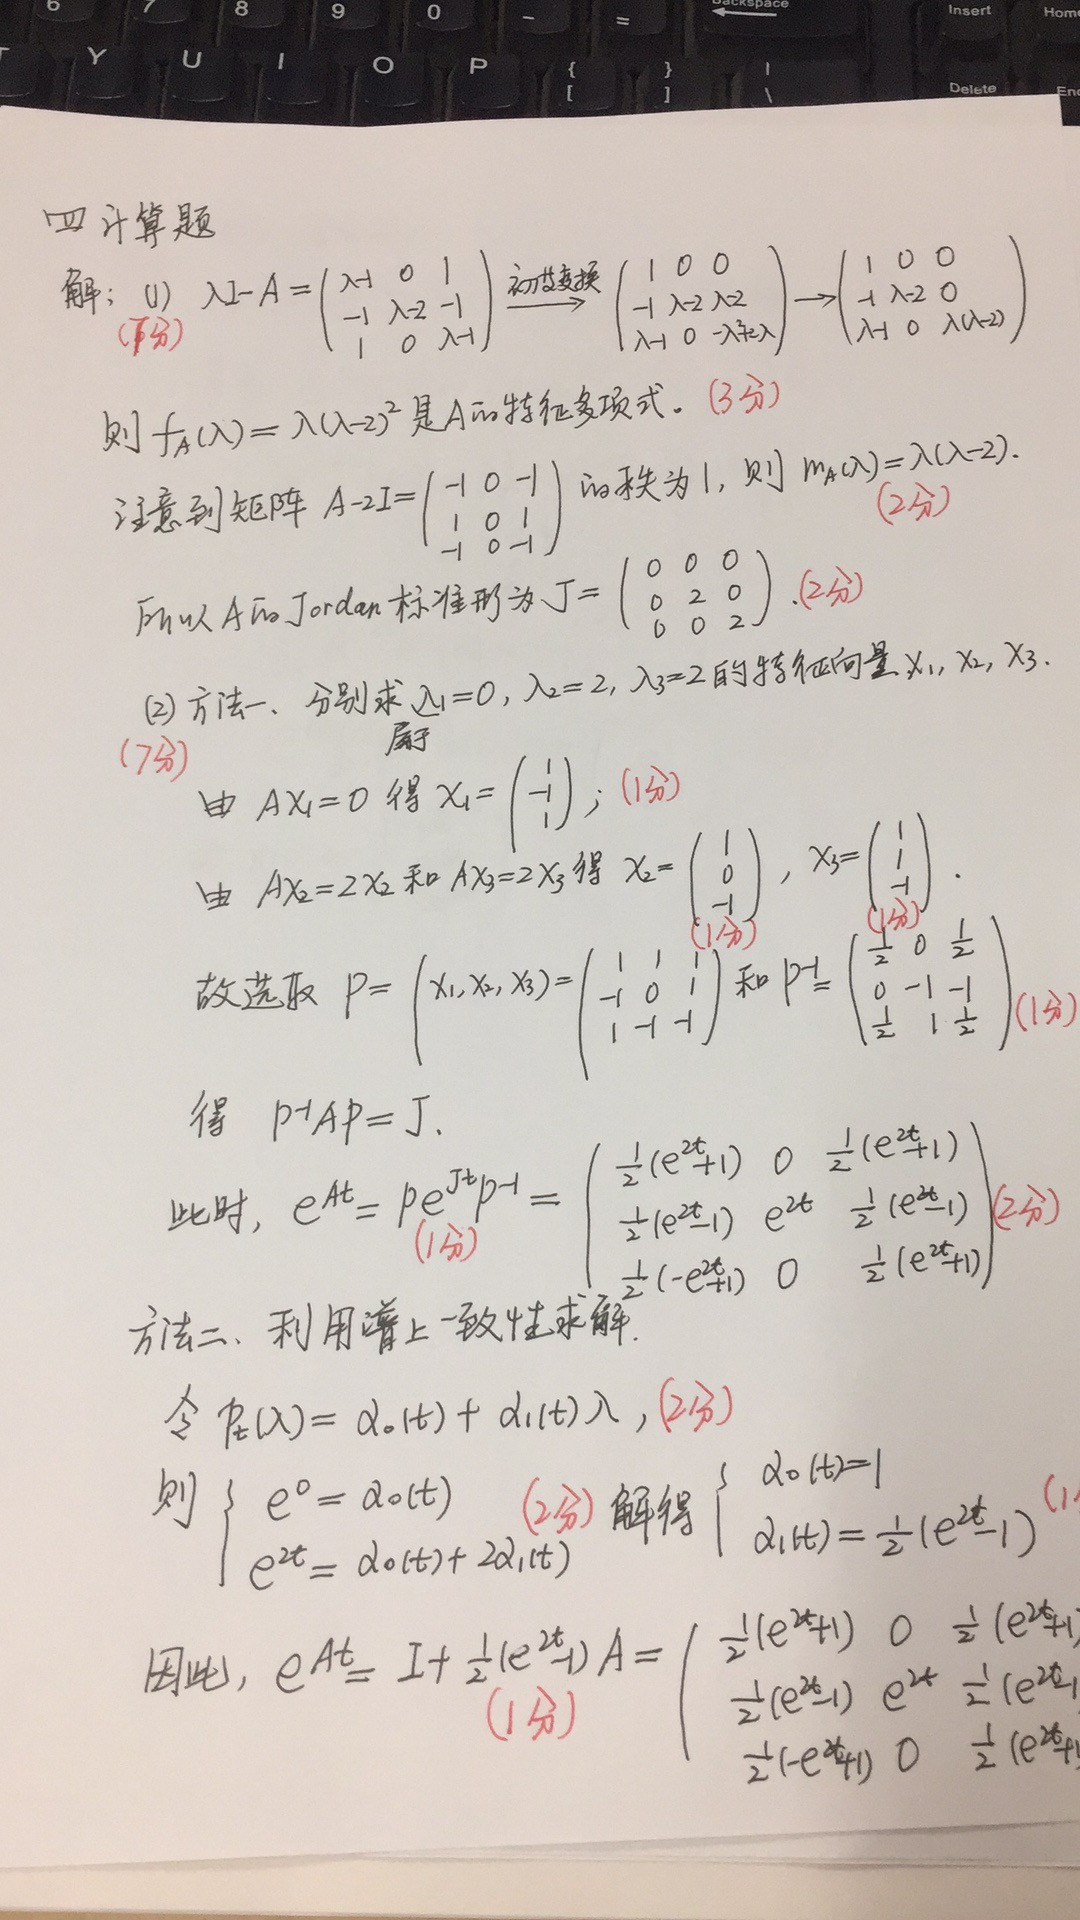 6 7 8 9 0 - = Backspace Insert Home
T Y U I O P { [ } ] | \ Delete End
四 计算题
解: (1) λI-A = (λ-1 0 1; -1 λ-2 -1; 1 0 λ-1) 初等变换→ (1 0 0; -1 λ-2 λ-2; λ-1 0 -λ²+2λ) → (1 0 0; -1 λ-2 0; λ-1 0 λ(λ-2))
则 f_A(λ) = λ(λ-2)² 是A的特征多项式。(3分)
注意到矩阵 A-2I = (-1 0 -1; 1 0 1; -1 0 -1) 的秩为1, 则 m_A(λ) = λ(λ-2).
(2分)
所以A的Jordan标准形为 J = (0 0 0; 0 2 0; 0 0 2). (2分)
(2) 方法一、分别求属于λ₁=0, λ₂=2, λ₃=2的特征向量 x₁, x₂, x₃.
(7分)
由 Ax₁=0 得 x₁ = (1; -1; 1); (1分)
由 Ax₂=2x₂ 和 Ax₃=2x₃ 得 x₂ = (1; 0; -1), x₃ = (1; 1; -1).
(1分) (1分)
故选取 P = (x₁, x₂, x₃) = (1 1 1; -1 0 1; 1 -1 -1) 和 P⁻¹ = (1/2 0 1/2; 0 -1 -1; 1/2 1 1/2) (1分)
得 P⁻¹AP = J.
此时, e^{At} = Pe^{Jt}P⁻¹ = (1/2(e^{2t}+1) 0 1/2(e^{2t}+1); 1/2(e^{2t}-1) e^{2t} 1/2(e^{2t}-1); 1/2(-e^{2t}+1) 0 1/2(e^{2t}+1)) (2分)
(1分)
方法二、利用谱上一致性求解.
令 P_t(λ) = α₀(t) + α₁(t)λ, (2分)
则 { e⁰ = α₀(t) e^{2t} = α₀(t) + 2α₁(t) (2分) 解得 { α₀(t) = 1 α₁(t) = 1/2(e^{2t}-1) (1
因此, e^{At} = I + 1/2(e^{2t}-1)A = (1/2(e^{2t}+1) 0 1/2(e^{2t}+1); 1/2(e^{2t}-1) e^{2t} 1/2(e^{2t}-1; 1/2(-e^{2t}+1) 0 1/2(e^{2t}+1)
(1分)